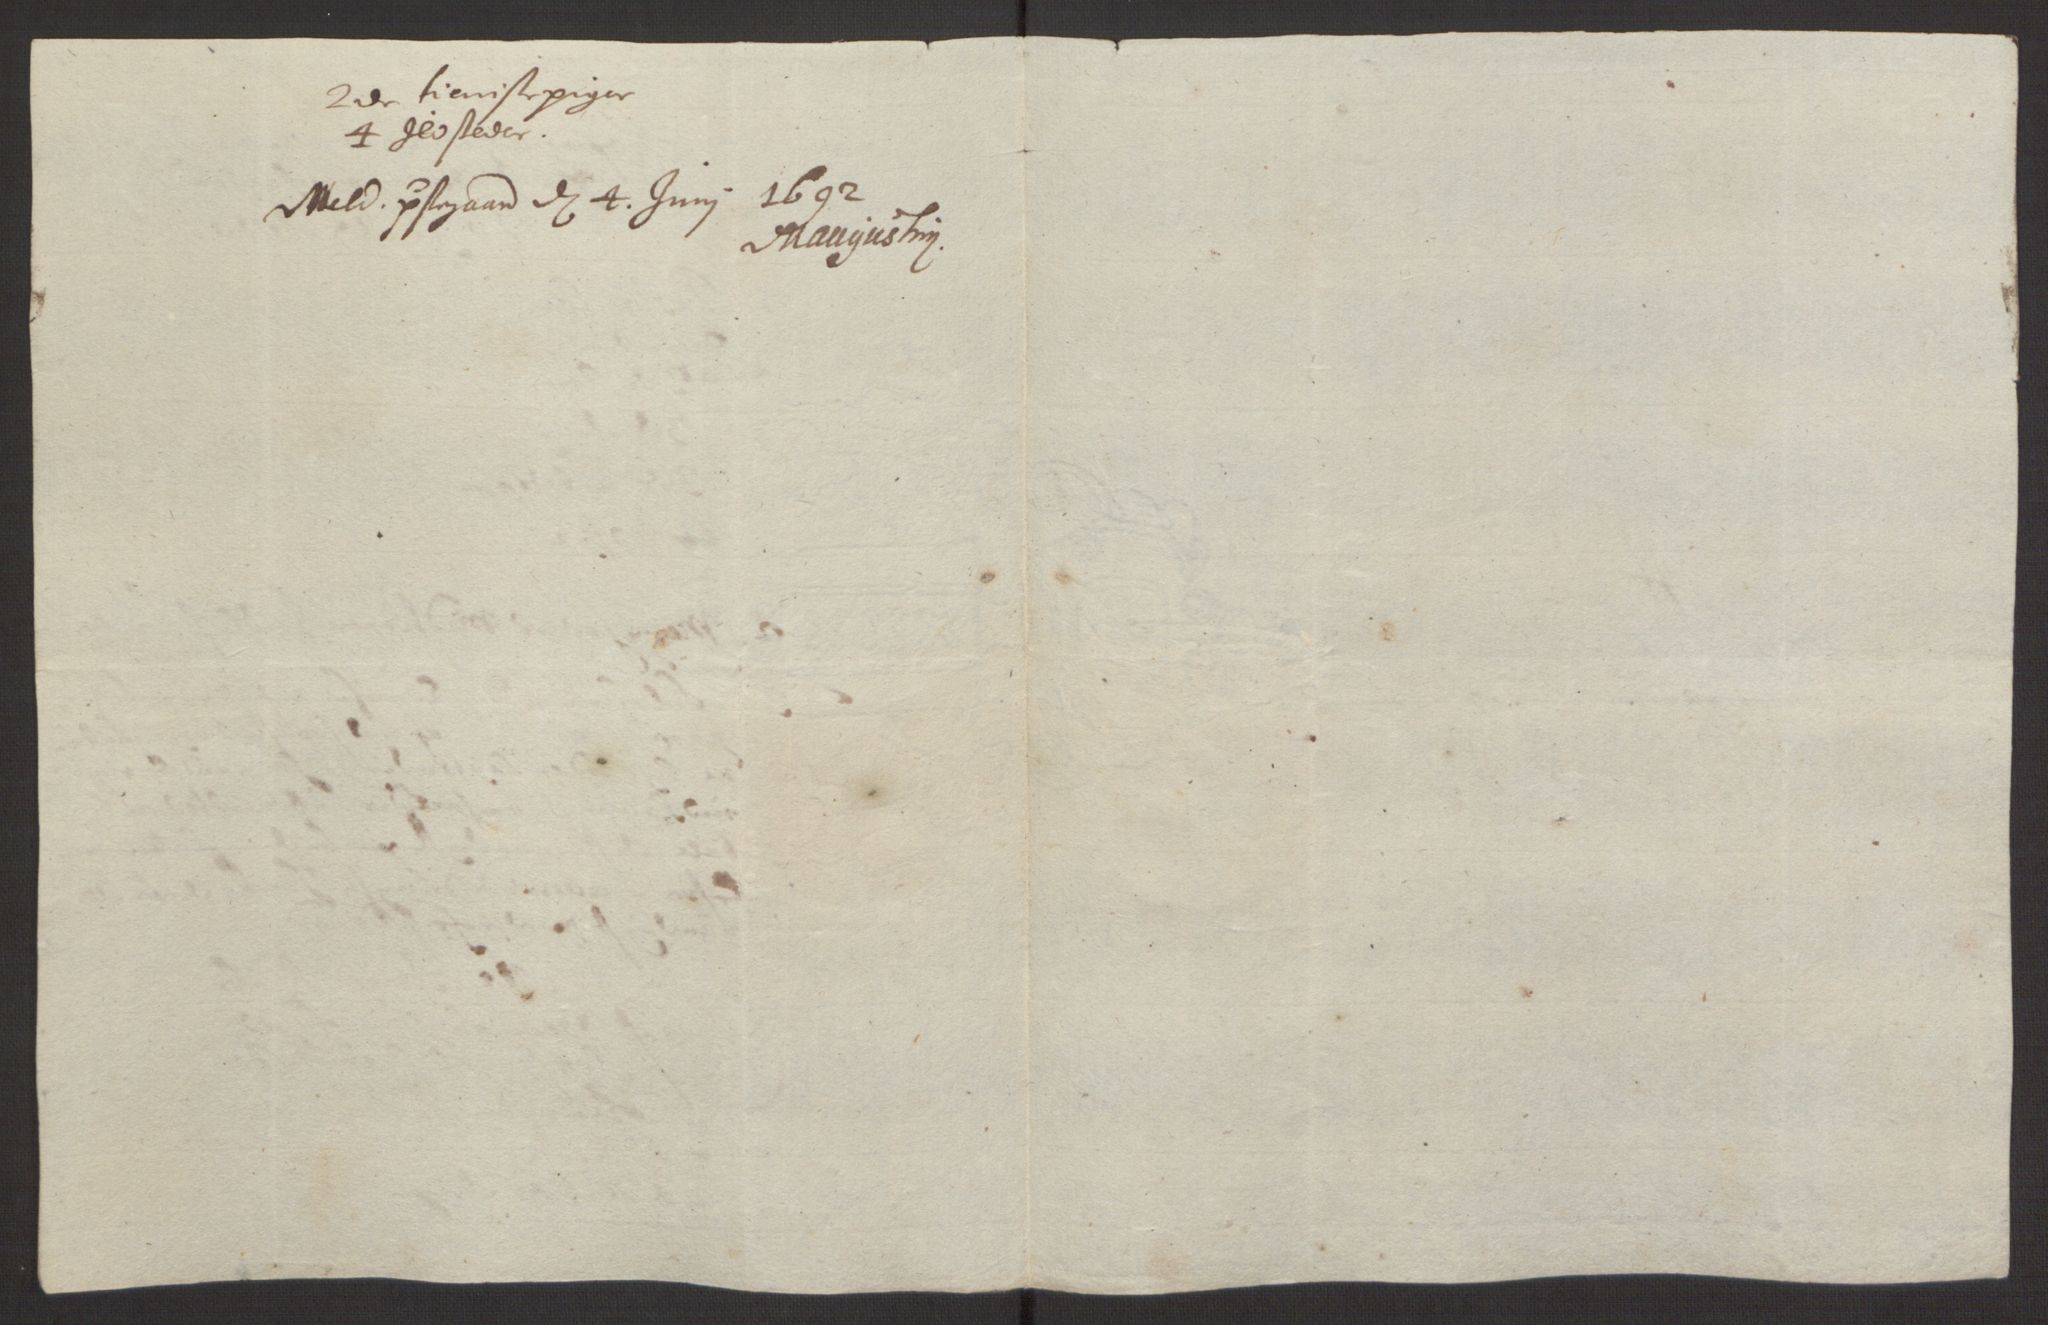 2de tienistepiger
4 Ildsteder.
Meld. pstegaard d 4. Junij 1692
MAugustin.